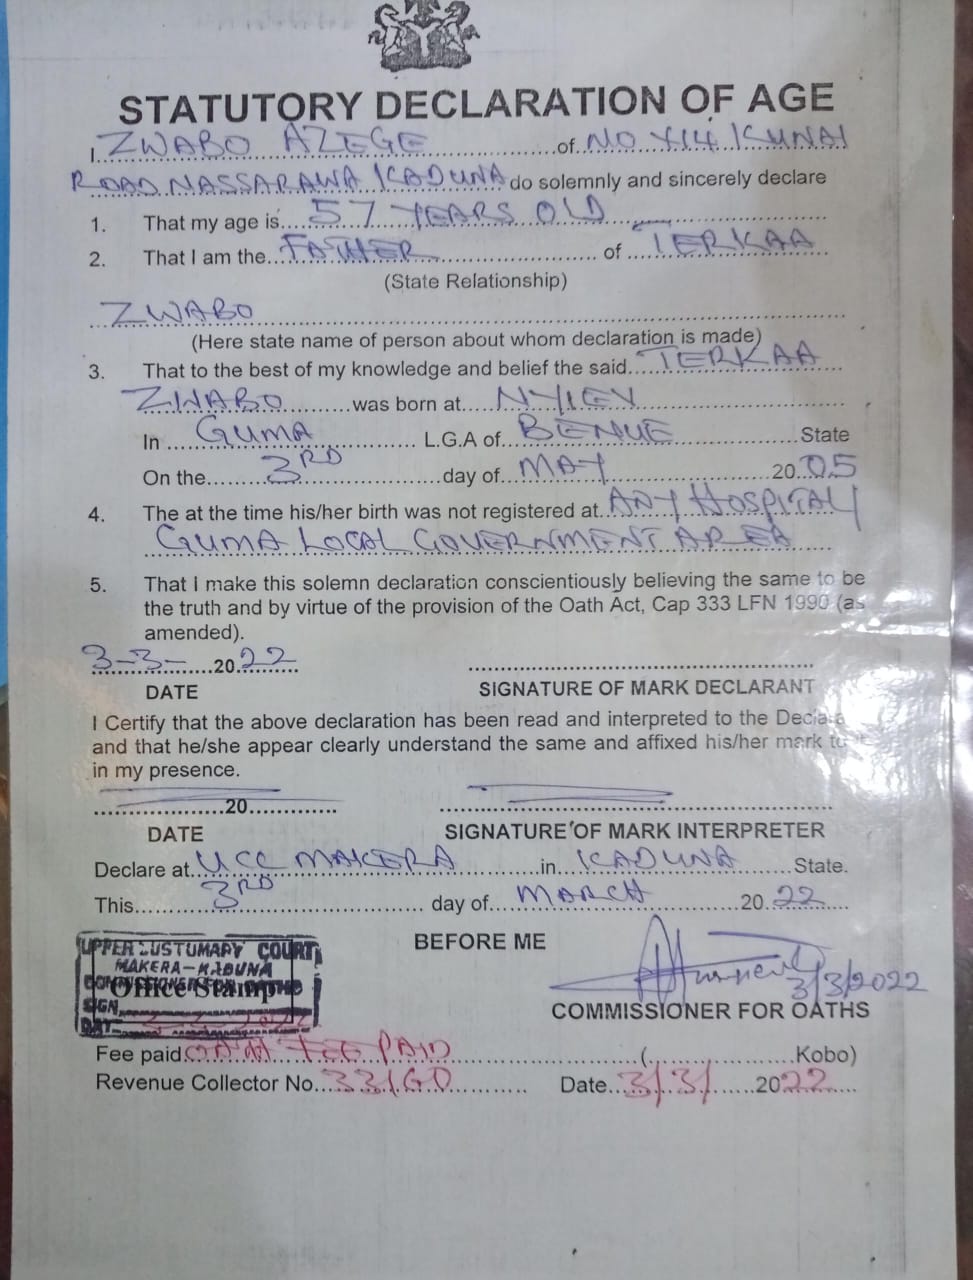 STATUTORY DECLARATION OF AGE
I ZWABO AZEGE of NO X14 KUNAI
ROAD NASSARAWA KADUNA do solemnly and sincerely declare
1. That my age is 57 YEARS OLD
2. That I am the FATHER of TERKAA
(State Relationship)
ZWABO
(Here state name of person about whom declaration is made)
3. That to the best of my knowledge and belief the said TERKAA
ZWABO was born at NYIEV
In GUMA L.G.A of BENUE State
On the 3RD day of MAY 2005
4. The at the time his/her birth was not registered at ANY HOSPITAL/
GUMA LOCAL GOVERNMENT AREA
5. That I make this solemn declaration conscientiously believing the same to be
the truth and by virtue of the provision of the Oath Act, Cap 333 LFN 1990 (as
amended).
3-3- 2022
DATE SIGNATURE OF MARK DECLARANT
I Certify that the above declaration has been read and interpreted to the Declara
and that he/she appear clearly understand the same and affixed his/her mark to it
in my presence.
20
DATE SIGNATURE OF MARK INTERPRETER
Declare at UCC MAKERA in KADUNA State.
This 3RD day of MARCH 2022
UPPER CUSTUMARY COURT
MAKERA-KADUNA
COMMISSIONER FOR OATHS
Office Stamp
SIGN
DATE
BEFORE ME
3/3/2022
COMMISSIONER FOR OATHS
Fee paid OATH FEE PAID ( Kobo)
Revenue Collector No. 331GD Date 3/3/ 2022